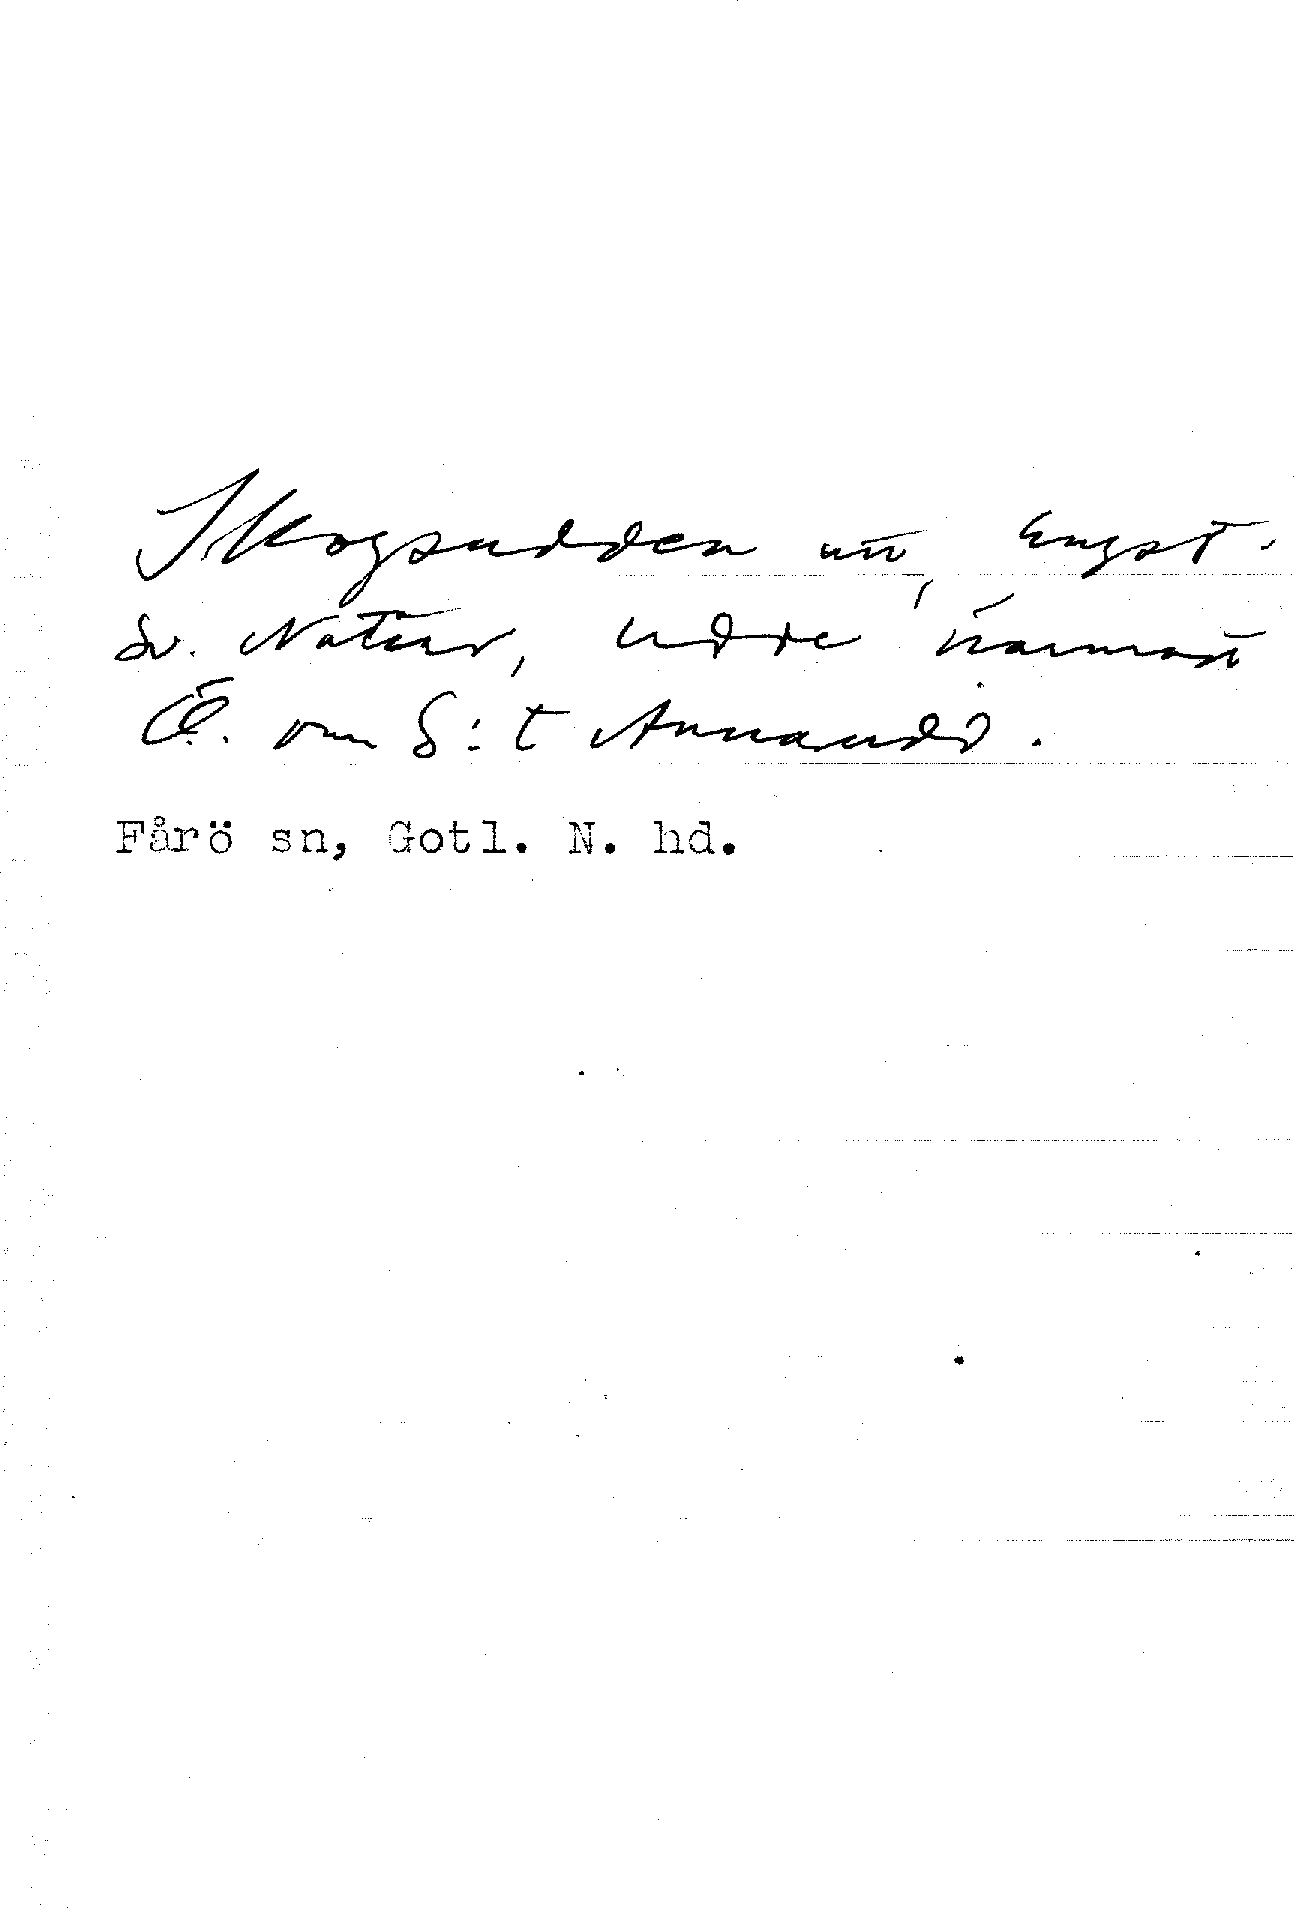 Skogsudden nv, Engst.
Sv. Natur, udde närmast
Ö. om S:t Annaudd.
Fårö sn, Gotl. N. hd.